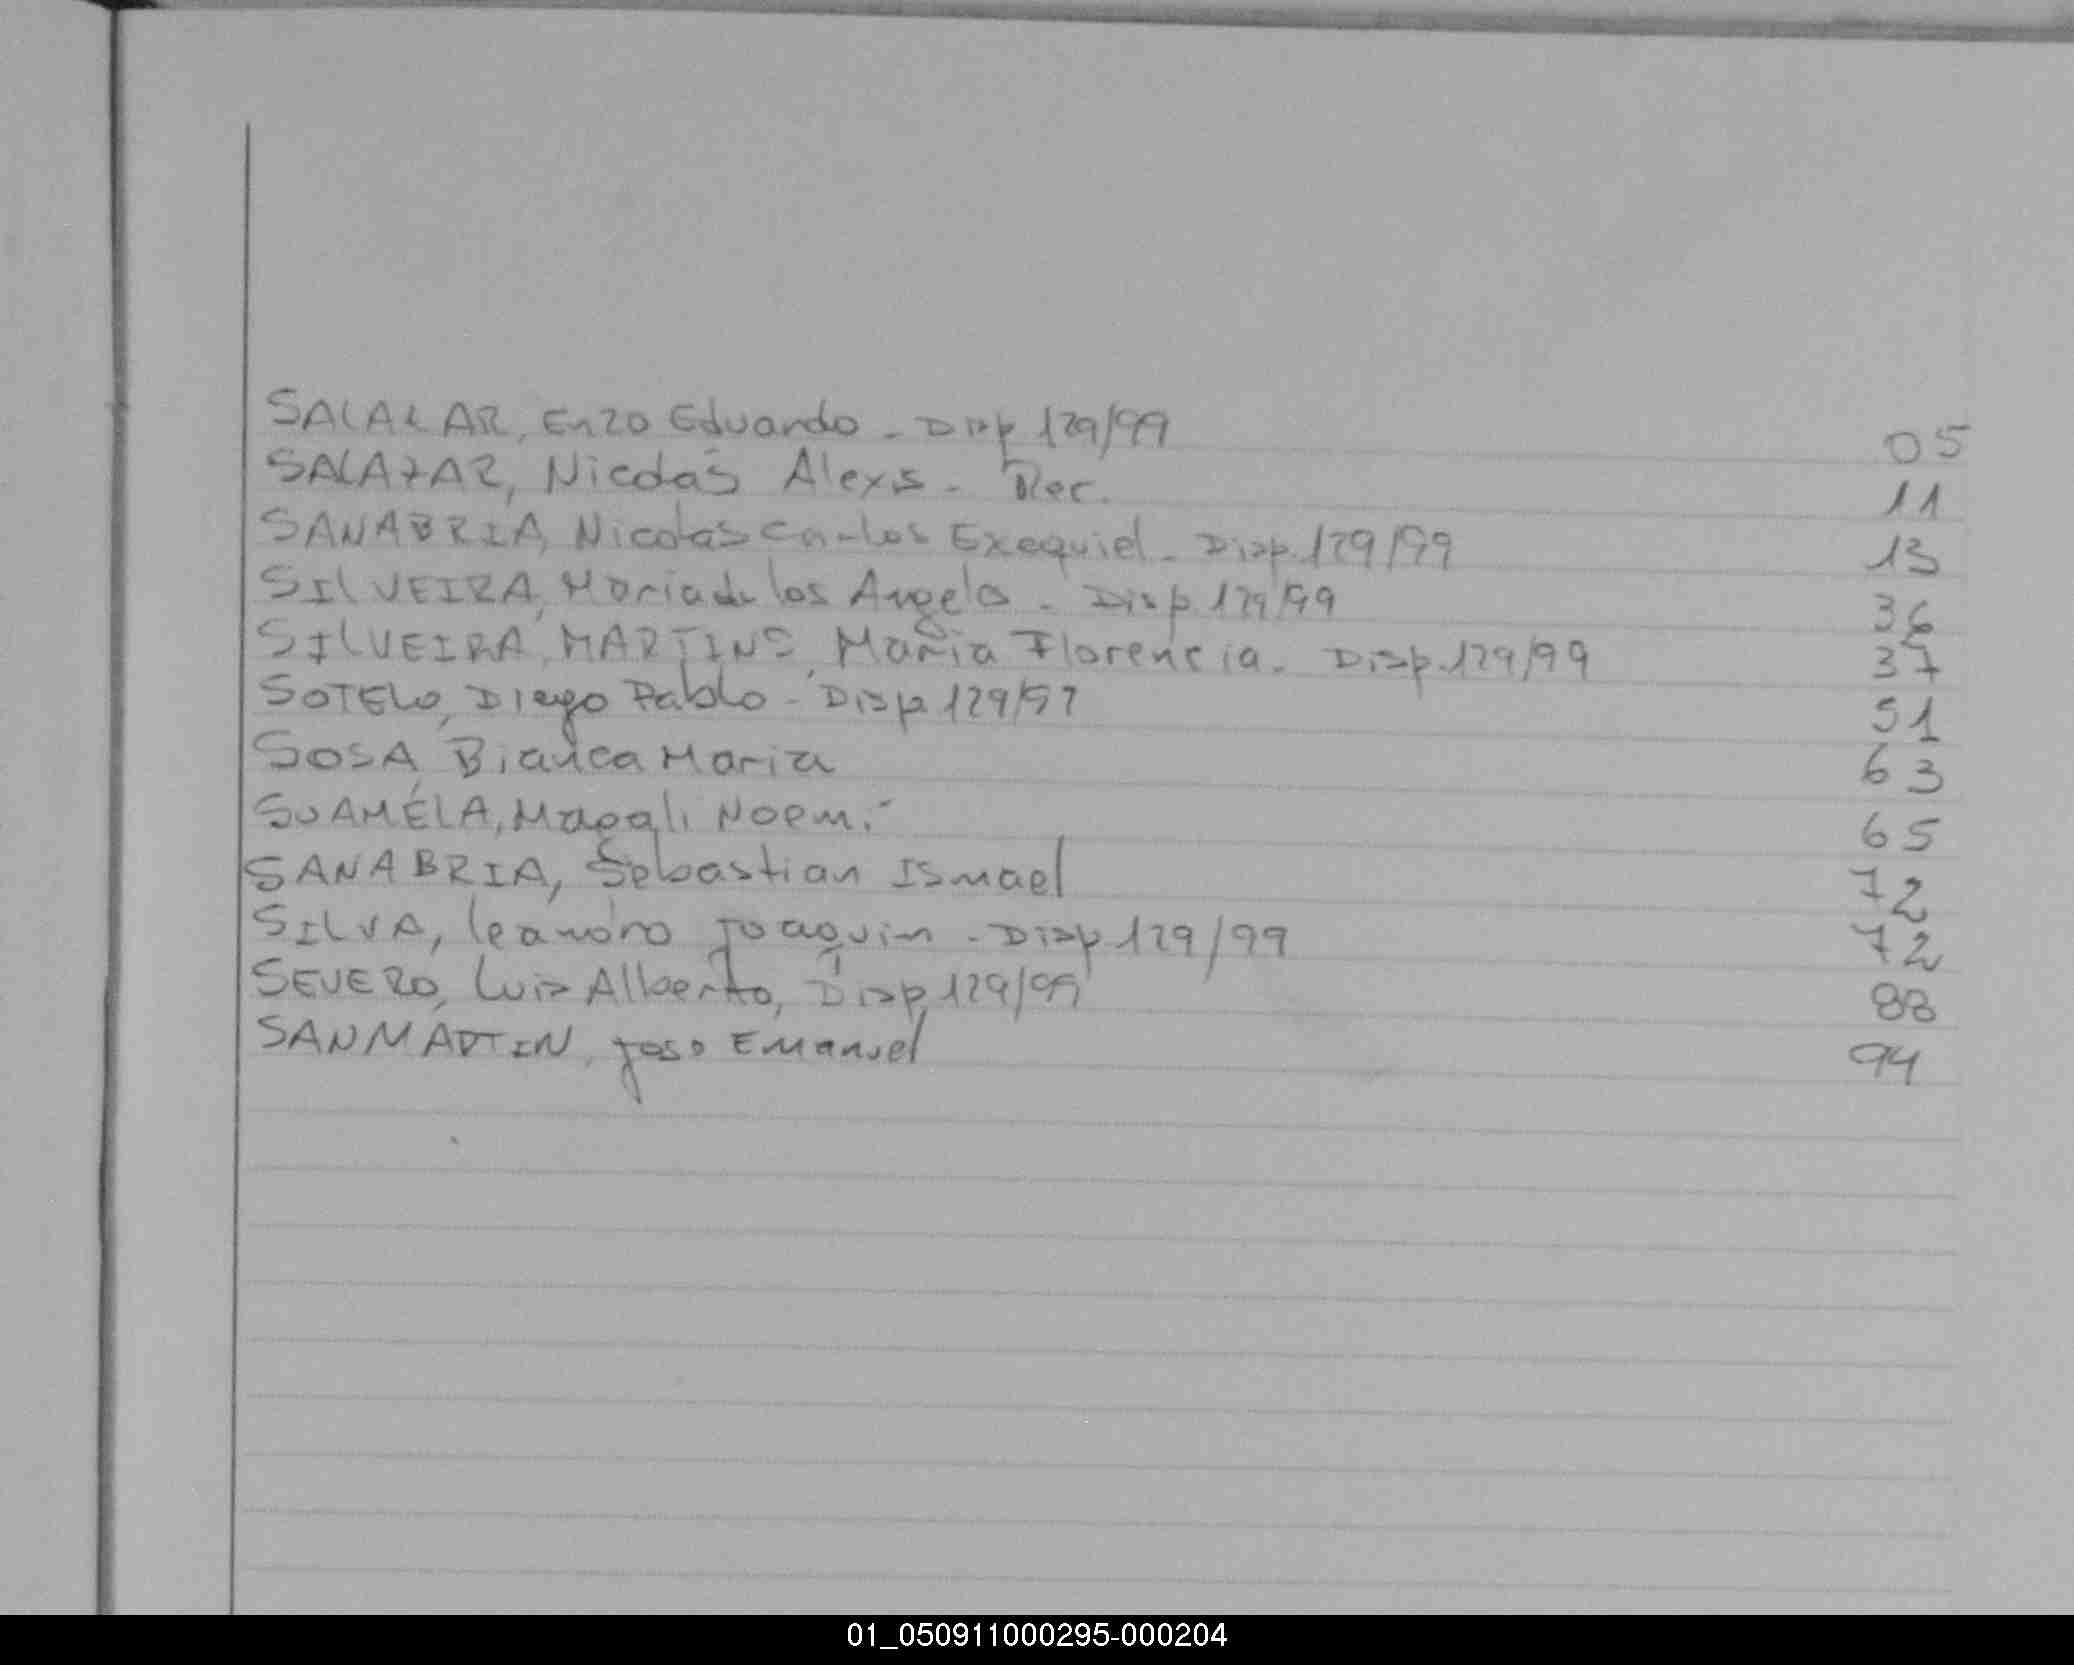 SALAZAR, Enzo Eduardo - Disp 129/99 05
SALAZAR, Nicolás Alexis - Rec. 11
SANABRIA, Nicolás Carlos Exequiel - Disp. 129/99 13
SILVEIRA, Maria de los Angeles - Disp 129/99 36
SILVEIRA, MARTINS, Maria Florencia - Disp. 129/99 37
SOTELO, Diego Pablo - Disp 129/97 51
SOSA, Bianca Maria 63
Magali Noemí 65
SANABRIA, Sebastian Ismael 72
SILVA, leandro Joaquin - Disp 129/99 72
SEVERO, Luis Alberto, Disp 129/99 88
SANMARTIN, Emanuel 94
01_050911000295-000204